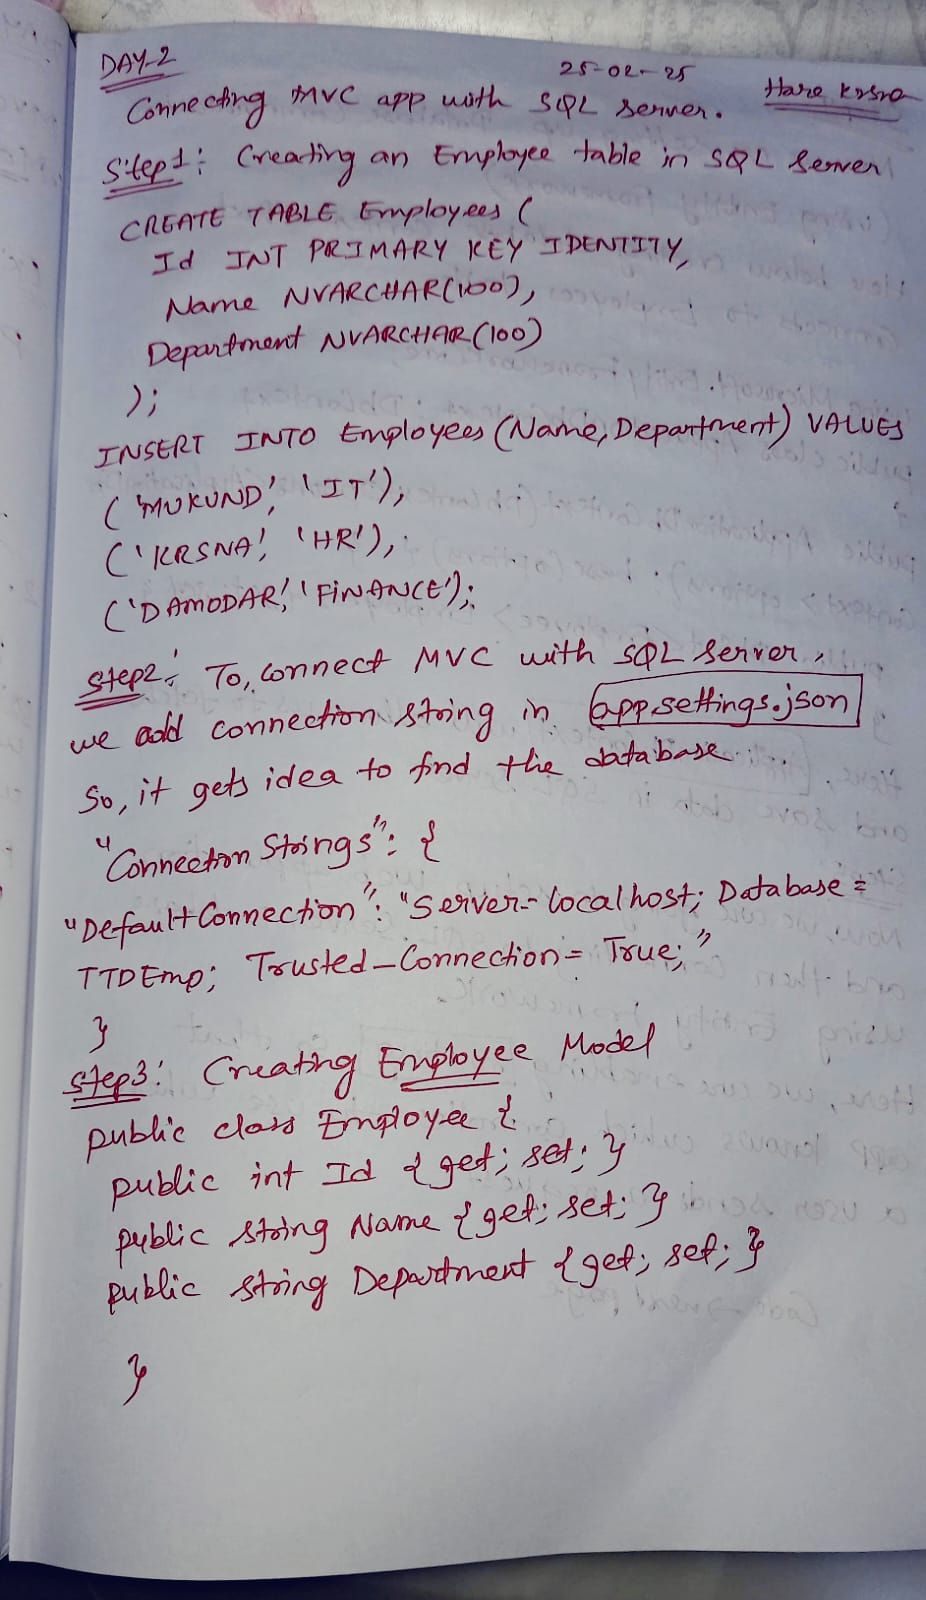 DAY-2
25-02-25
Hare Krsna
Connecting MVC app with SQL server.
Step1: Creating an Employee table in SQL Server
CREATE TABLE Employees (
Id INT PRIMARY KEY IDENTITY,
Name NVARCHAR(100),
Department NVARCHAR(100)
);
INSERT INTO Employees (Name, Department) VALUES
('MUKUND', 'IT'),
('KRSNA', 'HR'),
('DAMODAR', 'FINANCE');
Step2: To, connect MVC with SQL Server,
we add connection string in appsettings.json
So, it gets idea to find the database
"Connection Strings": {
"DefaultConnection": "Server=localhost; Database=
TTDEmp; Trusted_Connection=True;"
}
Step3: Creating Employee Model
public class Employee {
public int Id { get; set; }
public string Name { get; set; }
public string Department { get; set; }
}